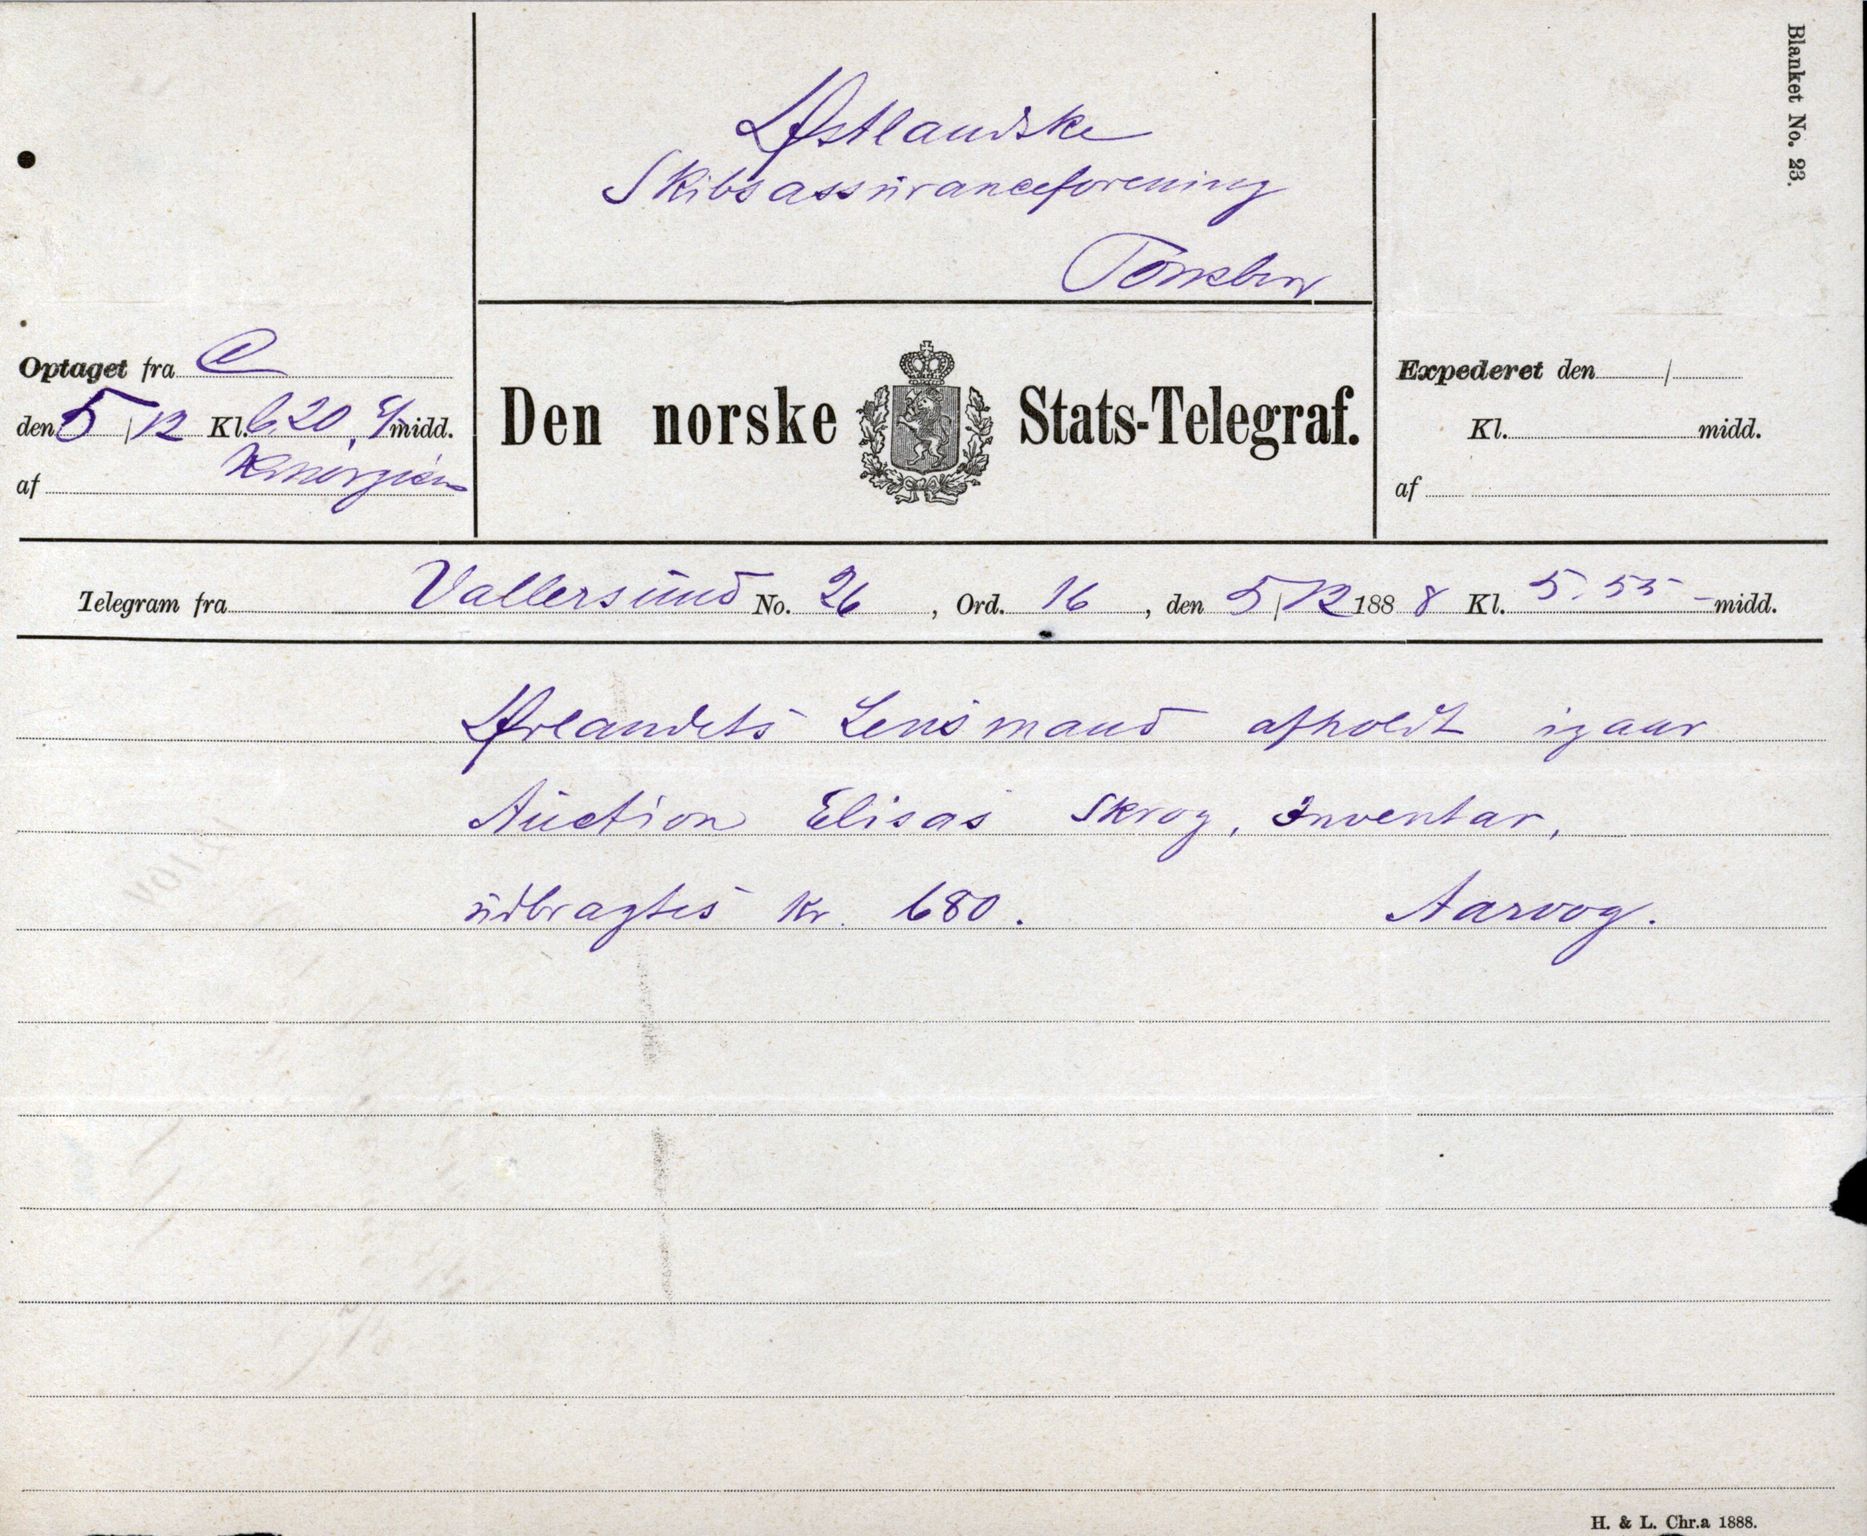 Blanket No. 23.
Østlandske
Skibsassuranceforening
Tønsberg
Optaget fra C
den 5/12 Kl. 6,20 E/midd.
af
Den norske Stats-Telegraf.
Expederet den /
Kl. midd.
af
Telegram fra Vallersund No. 26, Ord. 16, den 5/12 1888 Kl. 5.55 midd.
Ørlandets Lensmand afholdt igaar
Auction Elisas Skrog, Inventar,
udbragtes kr. 680. Aarvog.
H. & L. Chr.a 1888.